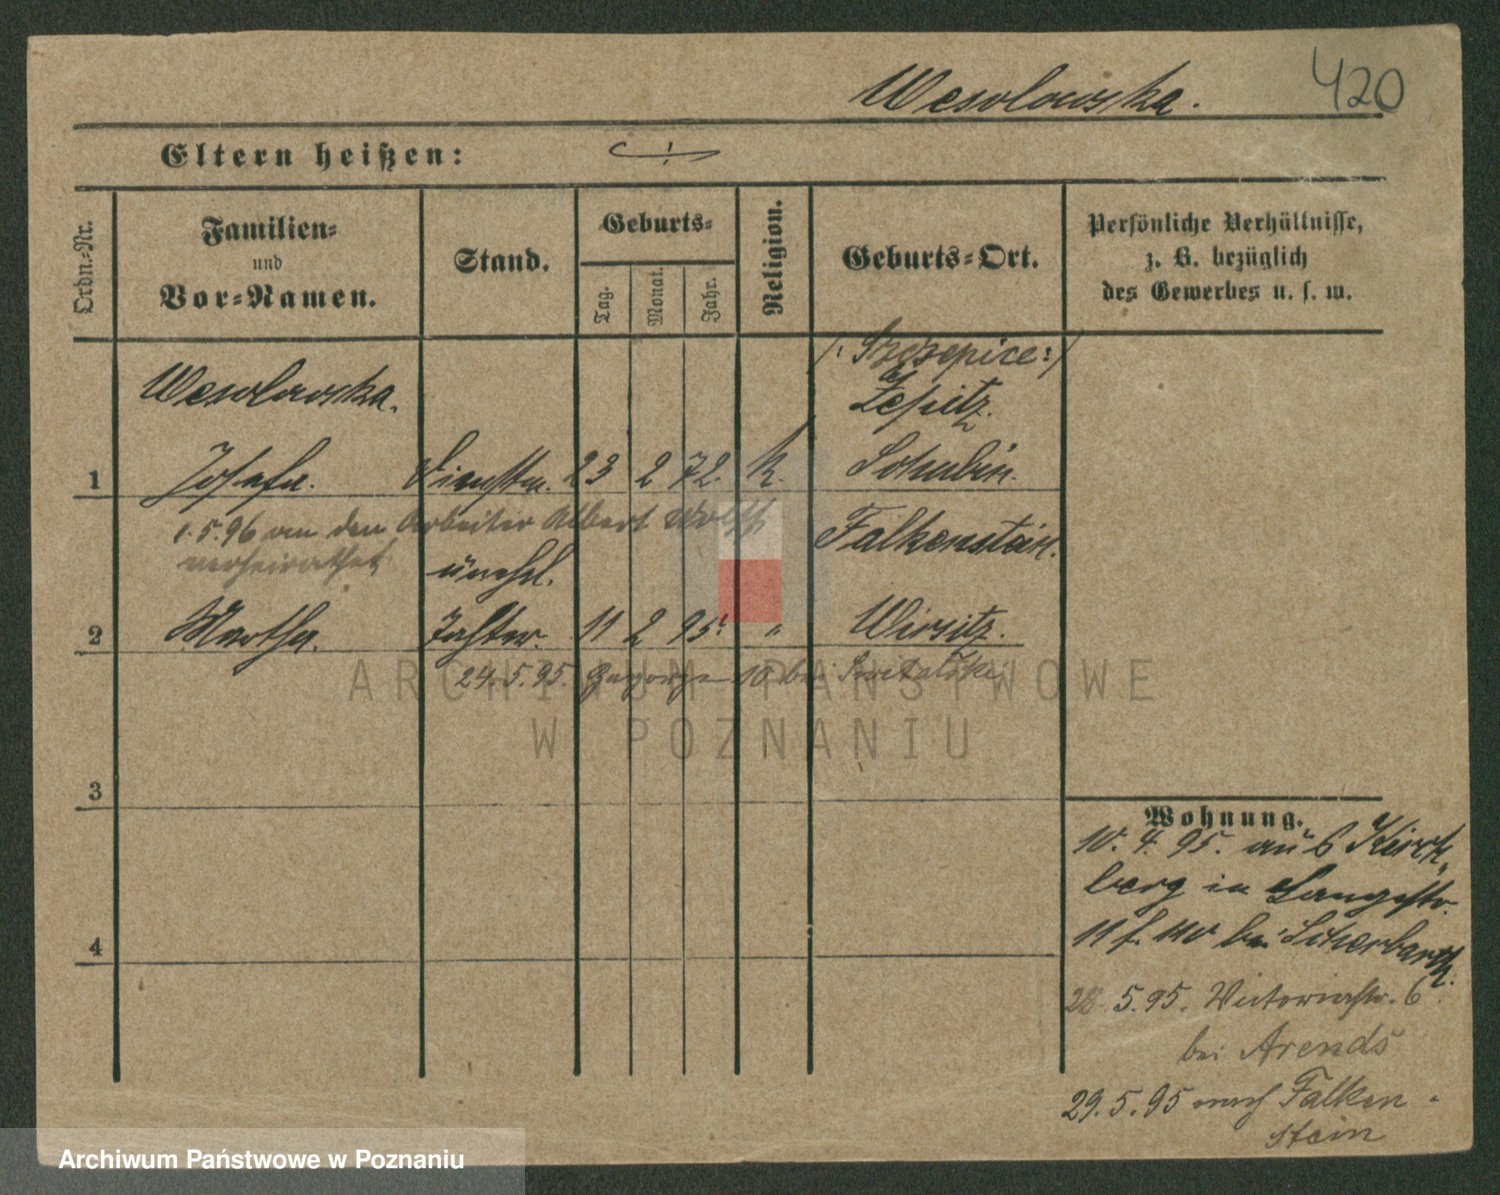 Wesolowska. 420
Eltern heißen: ./.
Ordn.-Nr.
Familien-
und
Vor-Namen.
Stand.
Geburts-
Tag.
Monat.
Jahr.
Religion.
Geburts-Ort.
Persönliche Verhältnisse,
z. B. bezüglich
des Gewerbes u. s. w.
/: Szczepice :/
Wesolowska.
Schubin.
1 Josefa. 23 2 72. k.
1.5.96 an den Arbeiter Albert Wolff
verheirathet
Falkenstein.
unehl.
2 Martha. Tochter. 11 2 95. " Wirsitz.
24.5.95. Zagorze 10 bei
3
4
Wohnung.
10. 4. 95. aus Kirch-
berg in Langestr.
11 f. bei Scherbarth.
28.5.95. Victoriastr. 6
bei Arends
29.5.95 nach Falken-
stein
ARCHIWUM PAŃSTWOWE
W POZNANIU
Archiwum Państwowe w Poznaniu